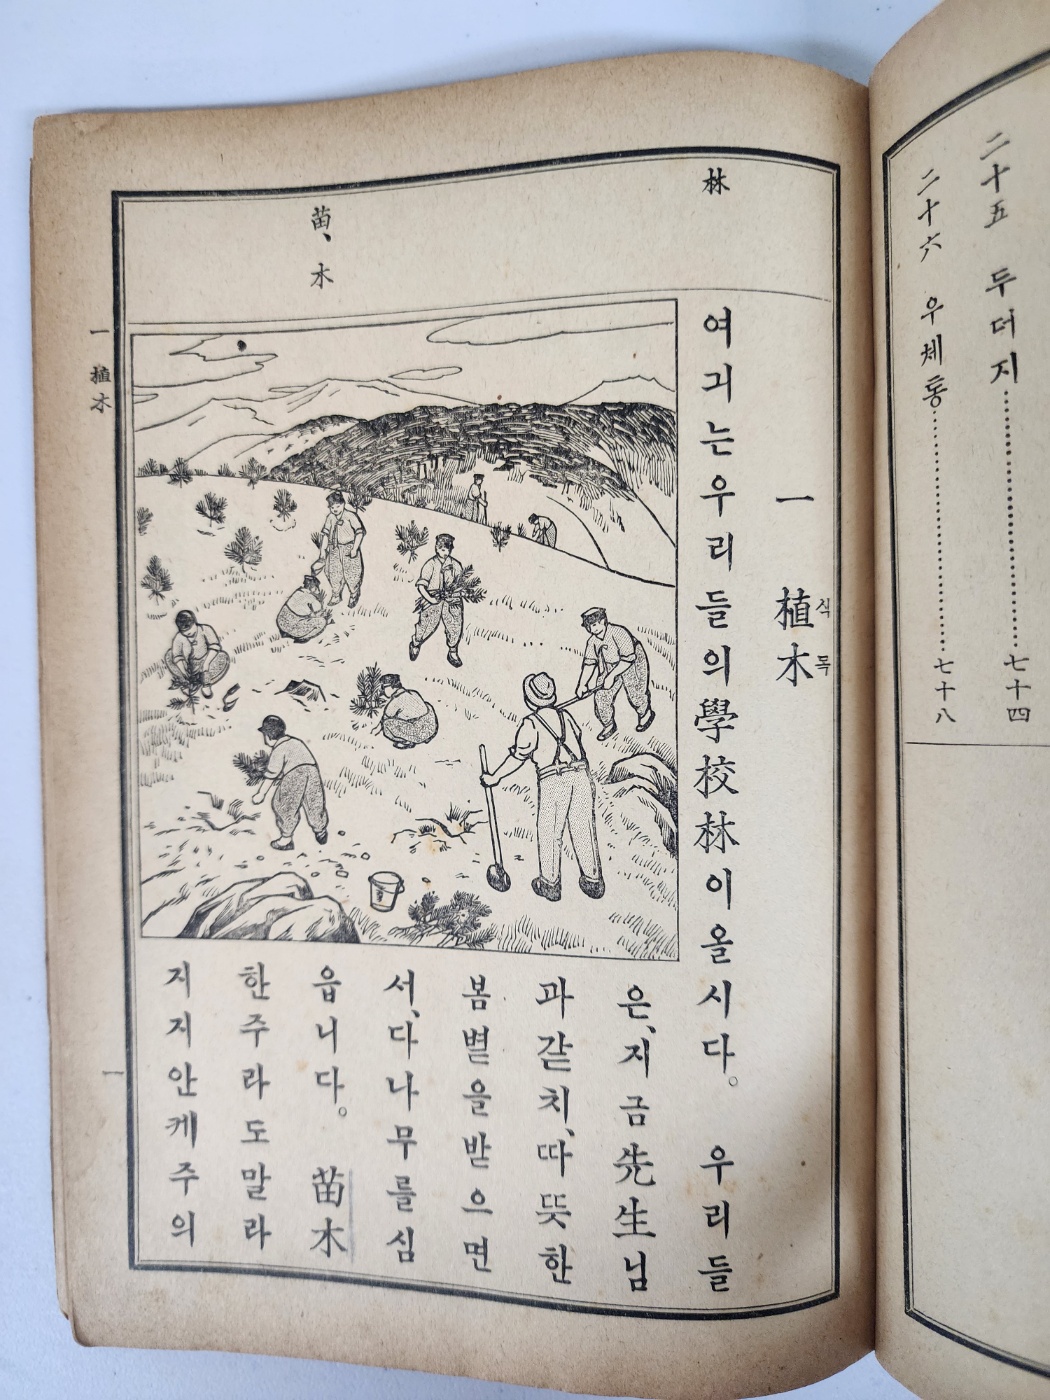 二十五 두더지……………………七十四
二十六 우체통……………………七十八
林
苗、木
一 植木
식목
여긔는우리들의學校林이올시다。 우리들
은、지금先生님
과갇치、따뜻한
봄볕을받으면
서、다나무를심
읍니다。 苗木
한주라도말라
지지안케주의
一 植木
一